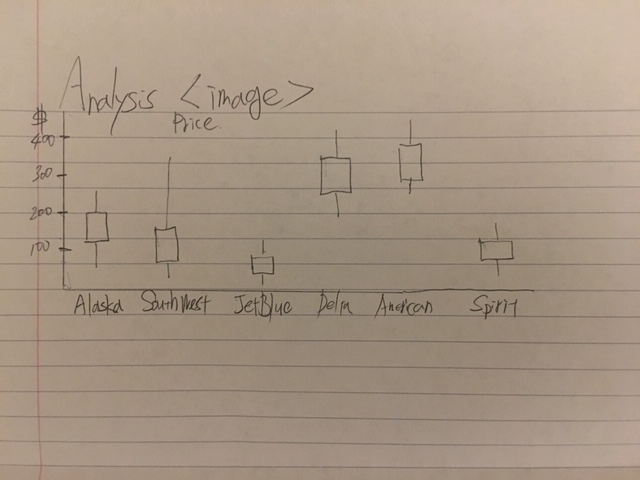 Analysis <image>
Price
$
400
300
200
100
Alaska Southwest JetBlue Delta American Spirit